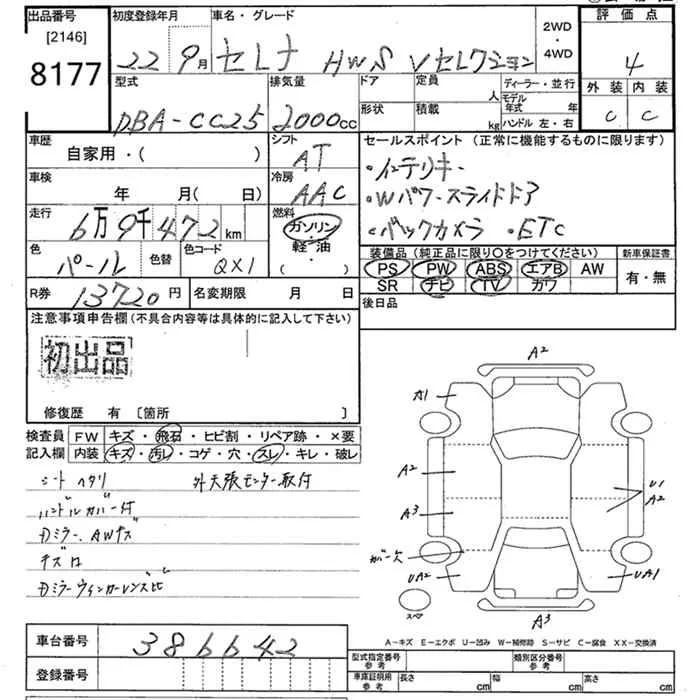 出品番号 初度登録年月 車名・グレード 2WD・4WD 評価点
[2146]
8177
22 9月 セレナ HWS Vセレクション 4
型式 排気量 ドア 定員 人 ディーラー・並行 外装 内装
DBA-CC25 2000cc 形状 積載 kg モデル年式 年 C C
ハンドル 左・右
車歴 自家用・( ) シフト AT
セールスポイント (正常に機能するものに限ります)
・インテリキー
・Wパワースライドドア
・バックカメラ ・ETC
車検 年 月(日) 冷房 AAC
走行 6万9千472km 燃料 ガソリン・軽油・( )
色 パール 色替 色コード QX1
装備品 (純正品に限り〇をつけてください) 新車保証書
PS PW ABS エアB AW 有・無
SR ナビ TV カワ
R券 13720円 名変期限 月 日
後日品
注意事項申告欄 (不具合内容等は具体的に記入して下さい)
初出品
修復歴 有 [箇所 ]
検査員記入欄 FW キズ・飛石・ヒビ割・リペア跡・×要
内装 キズ・汚レ・コゲ・穴・スレ・キレ・破レ
シートヘタリ 外天張モニター取付
ハンドルカバー付
Dミラー、AWキズ
Dミラーウィンカーレンズヒビ
A2
A1
A2
U1
A2
A3
ガーズ
UA2
UA1
スペア
A3
A-キズ E-エクボ U-凹み W-補修跡 S-サビ C-腐食 XX-交換済
車台番号 386642
登録番号
型式指定番号 参考 類別区分番号 参考
車庫証明用 参考 長さ cm 幅 cm 高さ cm